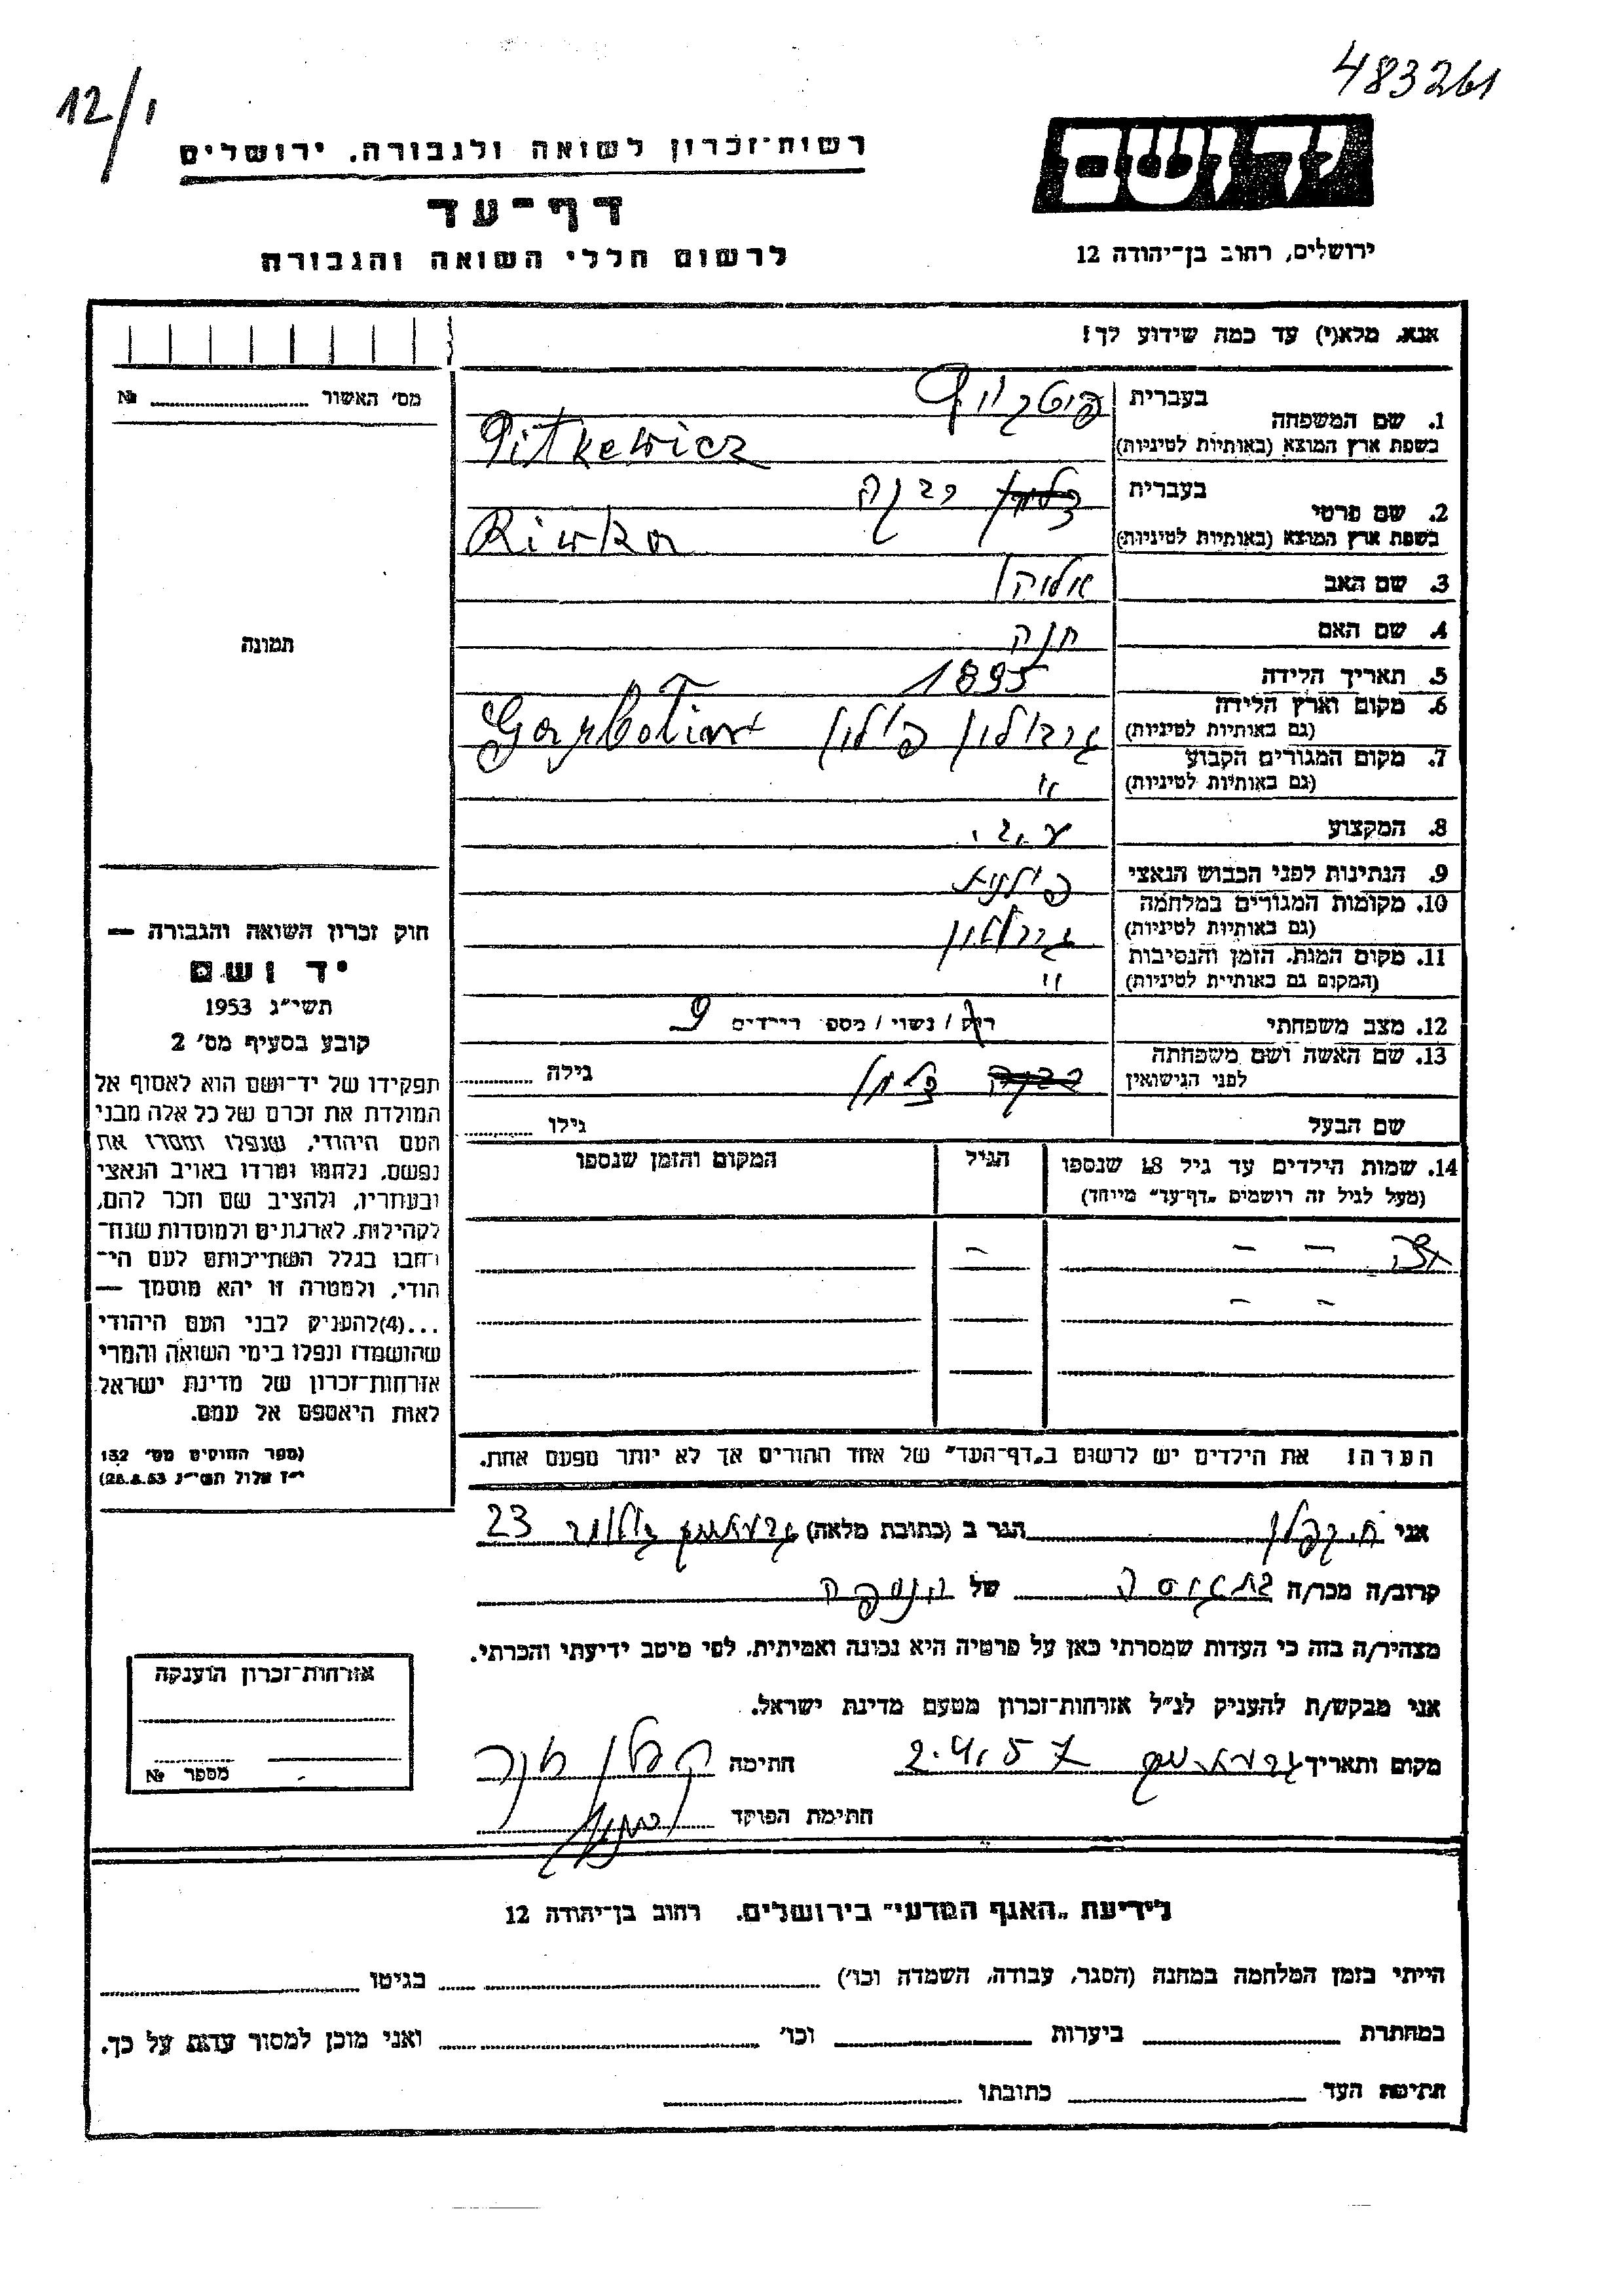 483261
12/1
ידושם
רשות־זכרון לשואה ולגבורה. ירושלים
דף־עד
לרשום חללי השואה והגבורה
ירושלים, רחוב בן־יהודה 12
אנא, מלא(י) עד כמה שידוע לך!
מס׳ האשור № 
1. שם המשפחה
בעברית
בשפת ארץ המוצא (באותיות לטיניות) Pitkewicz
2. שם פרטי
בעברית רבקה
בשפת ארץ המוצא (באותיות לטיניות) Riwka
3. שם האב
4. שם האם חנה
5. תאריך הלידה 1895
6. מקום וארץ הלידה
(גם באותיות לטיניות) פולין
7. מקום המגורים הקבוע
(גם באותיות לטיניות) "
8. המקצוע ע.ב.
9. הנתינות לפני הכבוש הנאצי פולנית
10. מקומות המגורים במלחמה
(גם באותיות לטיניות)
11. מקום המות. הזמן והנסיבות
(המקום גם באותיית לטיניות) "
12. מצב משפחתי רוק / נשוי / מספר הילדים 9
13. שם האשה ושם משפחתה
לפני הנישואין גילה
שם הבעל גילו
14. שמות הילדים עד גיל 18 שנספו
(מעל לגיל זה רושמים „דף־עד״ מיוחד)
הגיל
המקום והזמן שנספו
הערה! את הילדים יש לרשום ב„דף־העד״ של אחד ההורים אך לא יותר מפעם אחת.
תמונה
חוק זכרון השואה והגבורה —
יד ושם
תשי״ג 1953
קובע בסעיף מס׳ 2
תפקידו של יד־ושם הוא לאסוף אל
המולדת את זכרם של כל אלה מבני
העם היהודי, שנפלו ומסרו את
נפשם. נלחמו ומרדו באויב הנאצי
ובעוזריו, ולהציב שם וזכר להם,
לקהילות, לארגונים ולמוסדות שנח־
רחבו בגלל השתייכותם לעם הי־
הודי, ולמטרה זו יהא מוסמך —
...(4)להעניק לבני העם היהודי
שהושמדו ונפלו בימי השואה והמרי
אזרחות־זכרון של מדינת ישראל
לאות היאספם אל עמם.
(ספר החוקים מס׳ 132
י״ז אלול תשי״ג 28.8.53)
אני הגר ב (כתובת מלאה) 23
קרוב/ה מכר/ה של הנספה
מצהיר/ה בזה כי העדות שמסרתי כאן על פרטיה היא נכונה ואמיתית. לפי מיטב ידיעתי והכרתי.
אני מבקש/ת להעניק לנ״ל אזרחות־זכרון מטעם מדינת ישראל.
מקום ותאריך 2.4.57 חתימה
חתימת הפוקד
אזרחות־זכרון הוענקה
מספר №
לידיעת „האגף המדעי״ בירושלים. רחוב בן־יהודה 12
הייתי בזמן המלחמה במחנה (הסגר, עבודה, השמדה וכו׳) בגיטו
במחתרת ביערות וכו׳ ואני מוכן למסור עדות על כך.
חתימת העד כתובתו